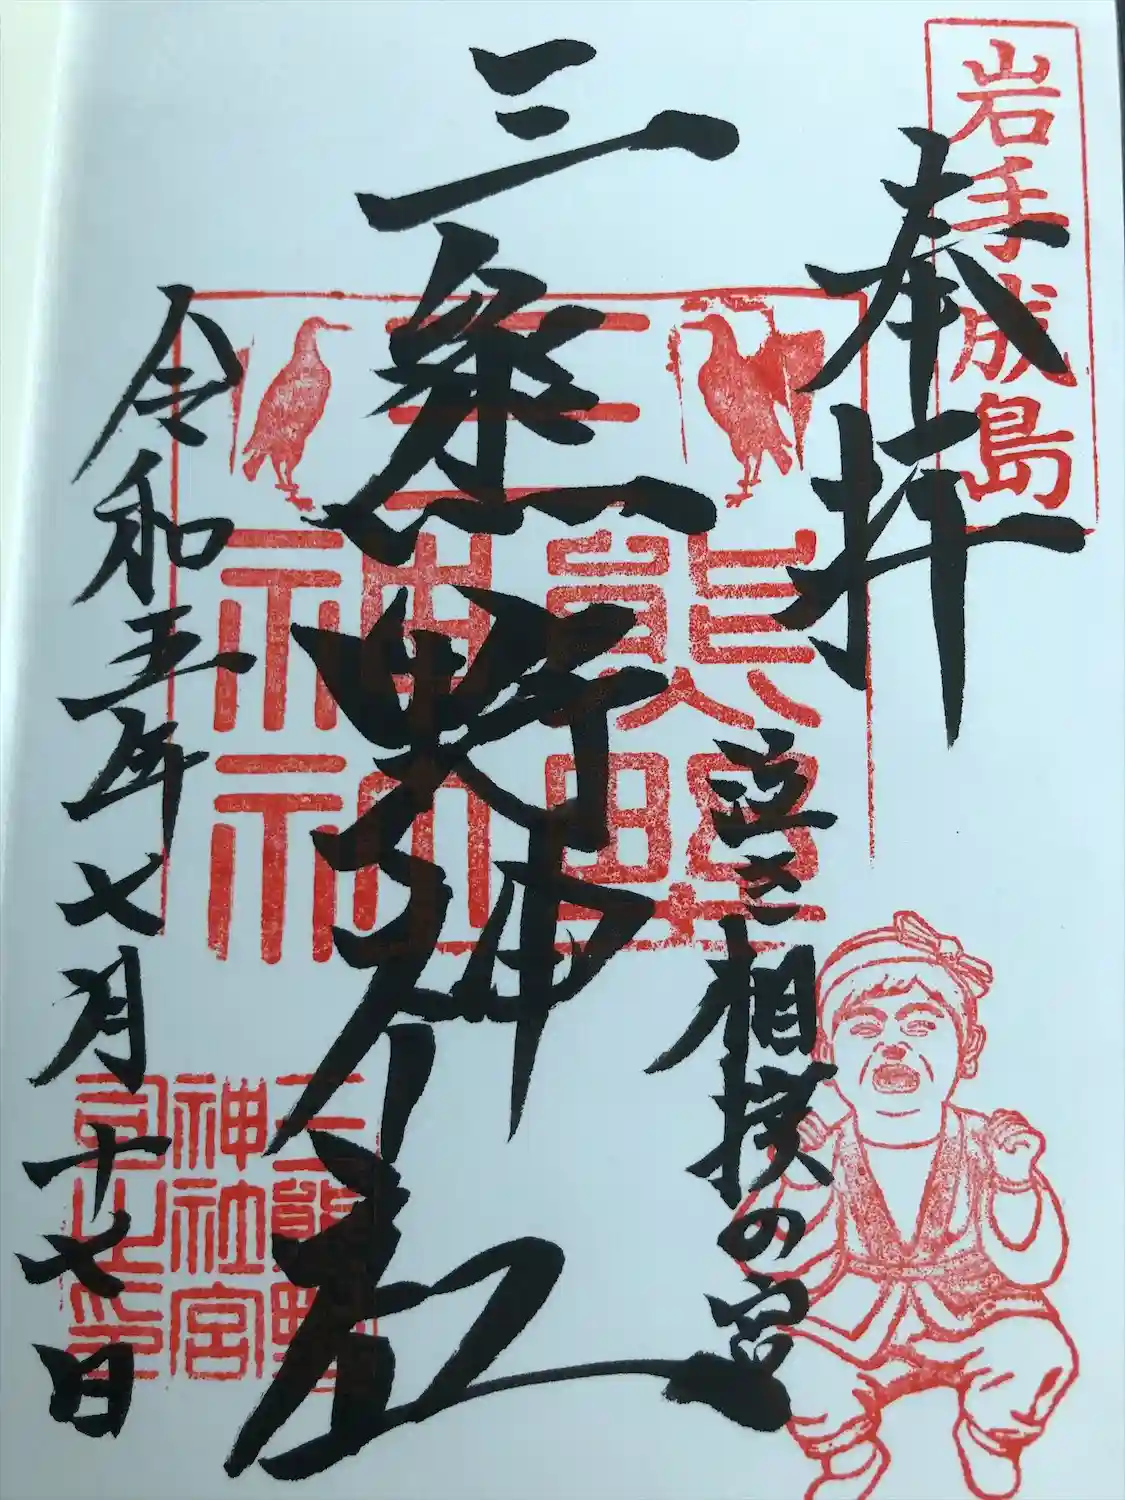 岩手成島
奉拝
泣き相撲の宮
三熊野神社
三熊野神社
令和五年七月十七日
三熊野神社宮司之印